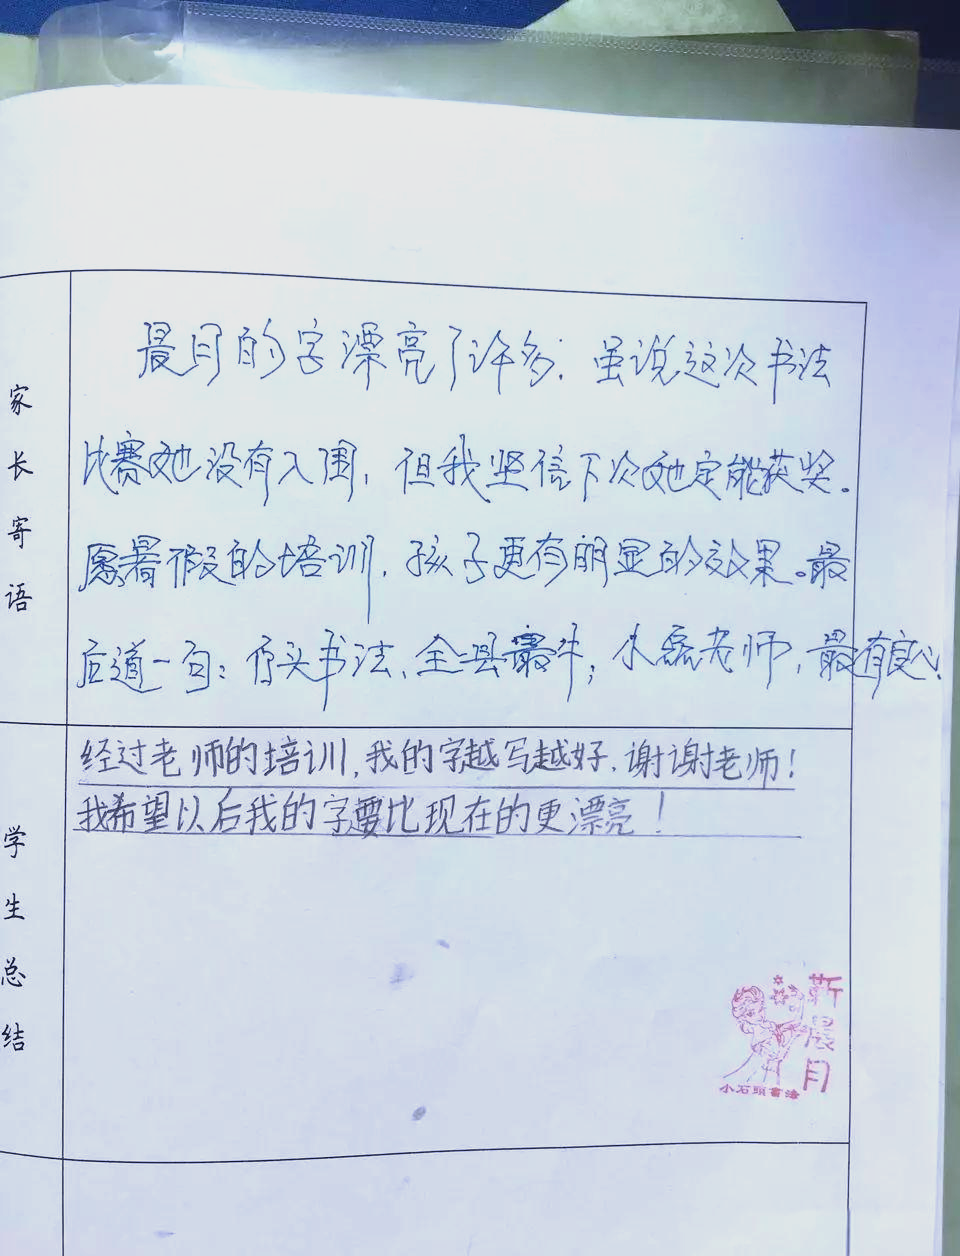 家长寄语
晨月的字漂亮了许多；虽说这次书法
比赛她没有入围，但我坚信下次她定能获奖。
愿暑假的培训，孩子更有明显的效果。最
后道一句：石头书法、全县最牛；小磊老师，最有良心.
学生总结
经过老师的培训,我的字越写越好.谢谢老师！
我希望以后我的字要比现在的更漂亮！
靳晨月
小石頭書法